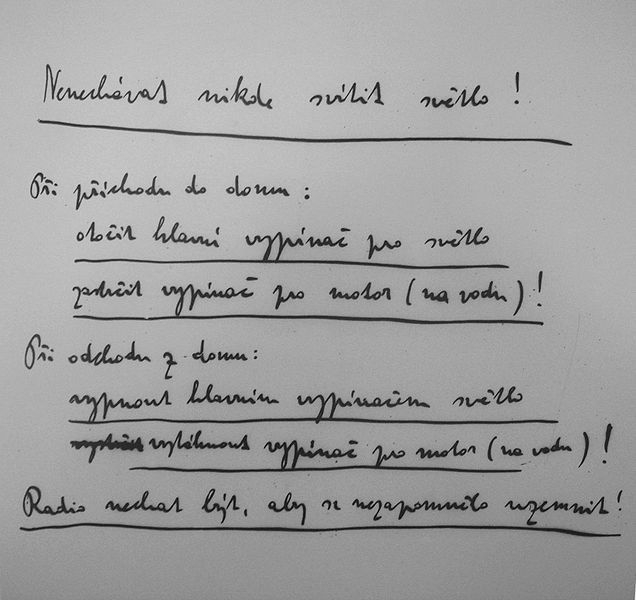 Nenechávat nikde svítit světlo!
Při příchodu do domu:
otočit hlavní vypínač pro světlo
zastrčit vypínač pro motor (na vodu)!
Při odchodu z domu:
vypnout hlavním vypínačem světlo
vytáhnout vypínač pro motor (na vodu)!
Radio nechat být, aby se nezapomnělo uzemnit!